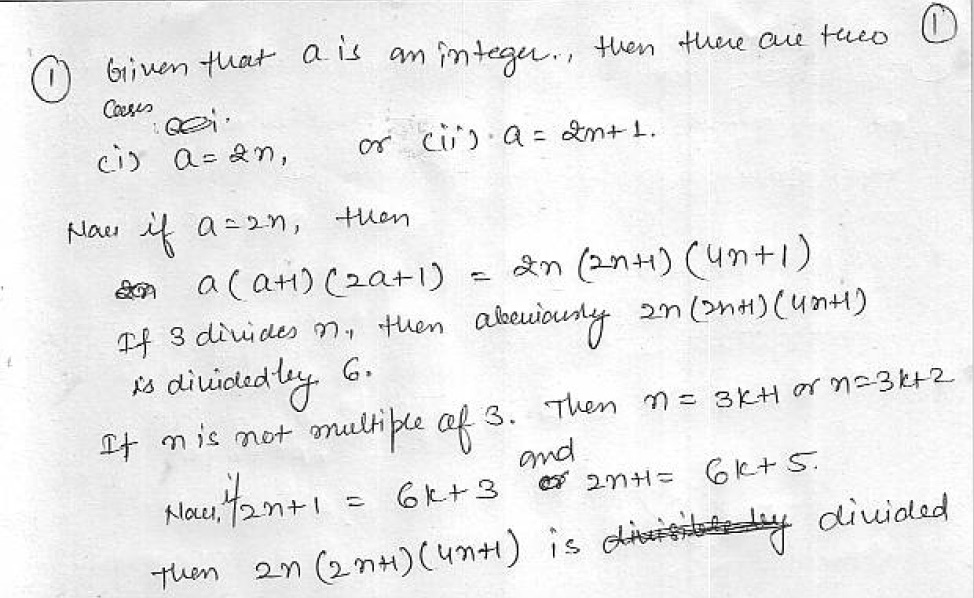 ① Given that a is an integer., then there are two ①
Cases
(i) a = 2n, or (ii). a = 2n+1.
Now if a=2n, then
a(a+1)(2a+1) = 2n(2n+1)(4n+1)
If 3 divides n., then obviously 2n(2n+1)(4n+1)
is divided by 6.
If n is not multiple of 3. Then n = 3k+1 or n=3k+2
Now, if 2n+1 = 6k+3 and 2n+1= 6k+5.
Then 2n(2n+1)(4n+1) is divided